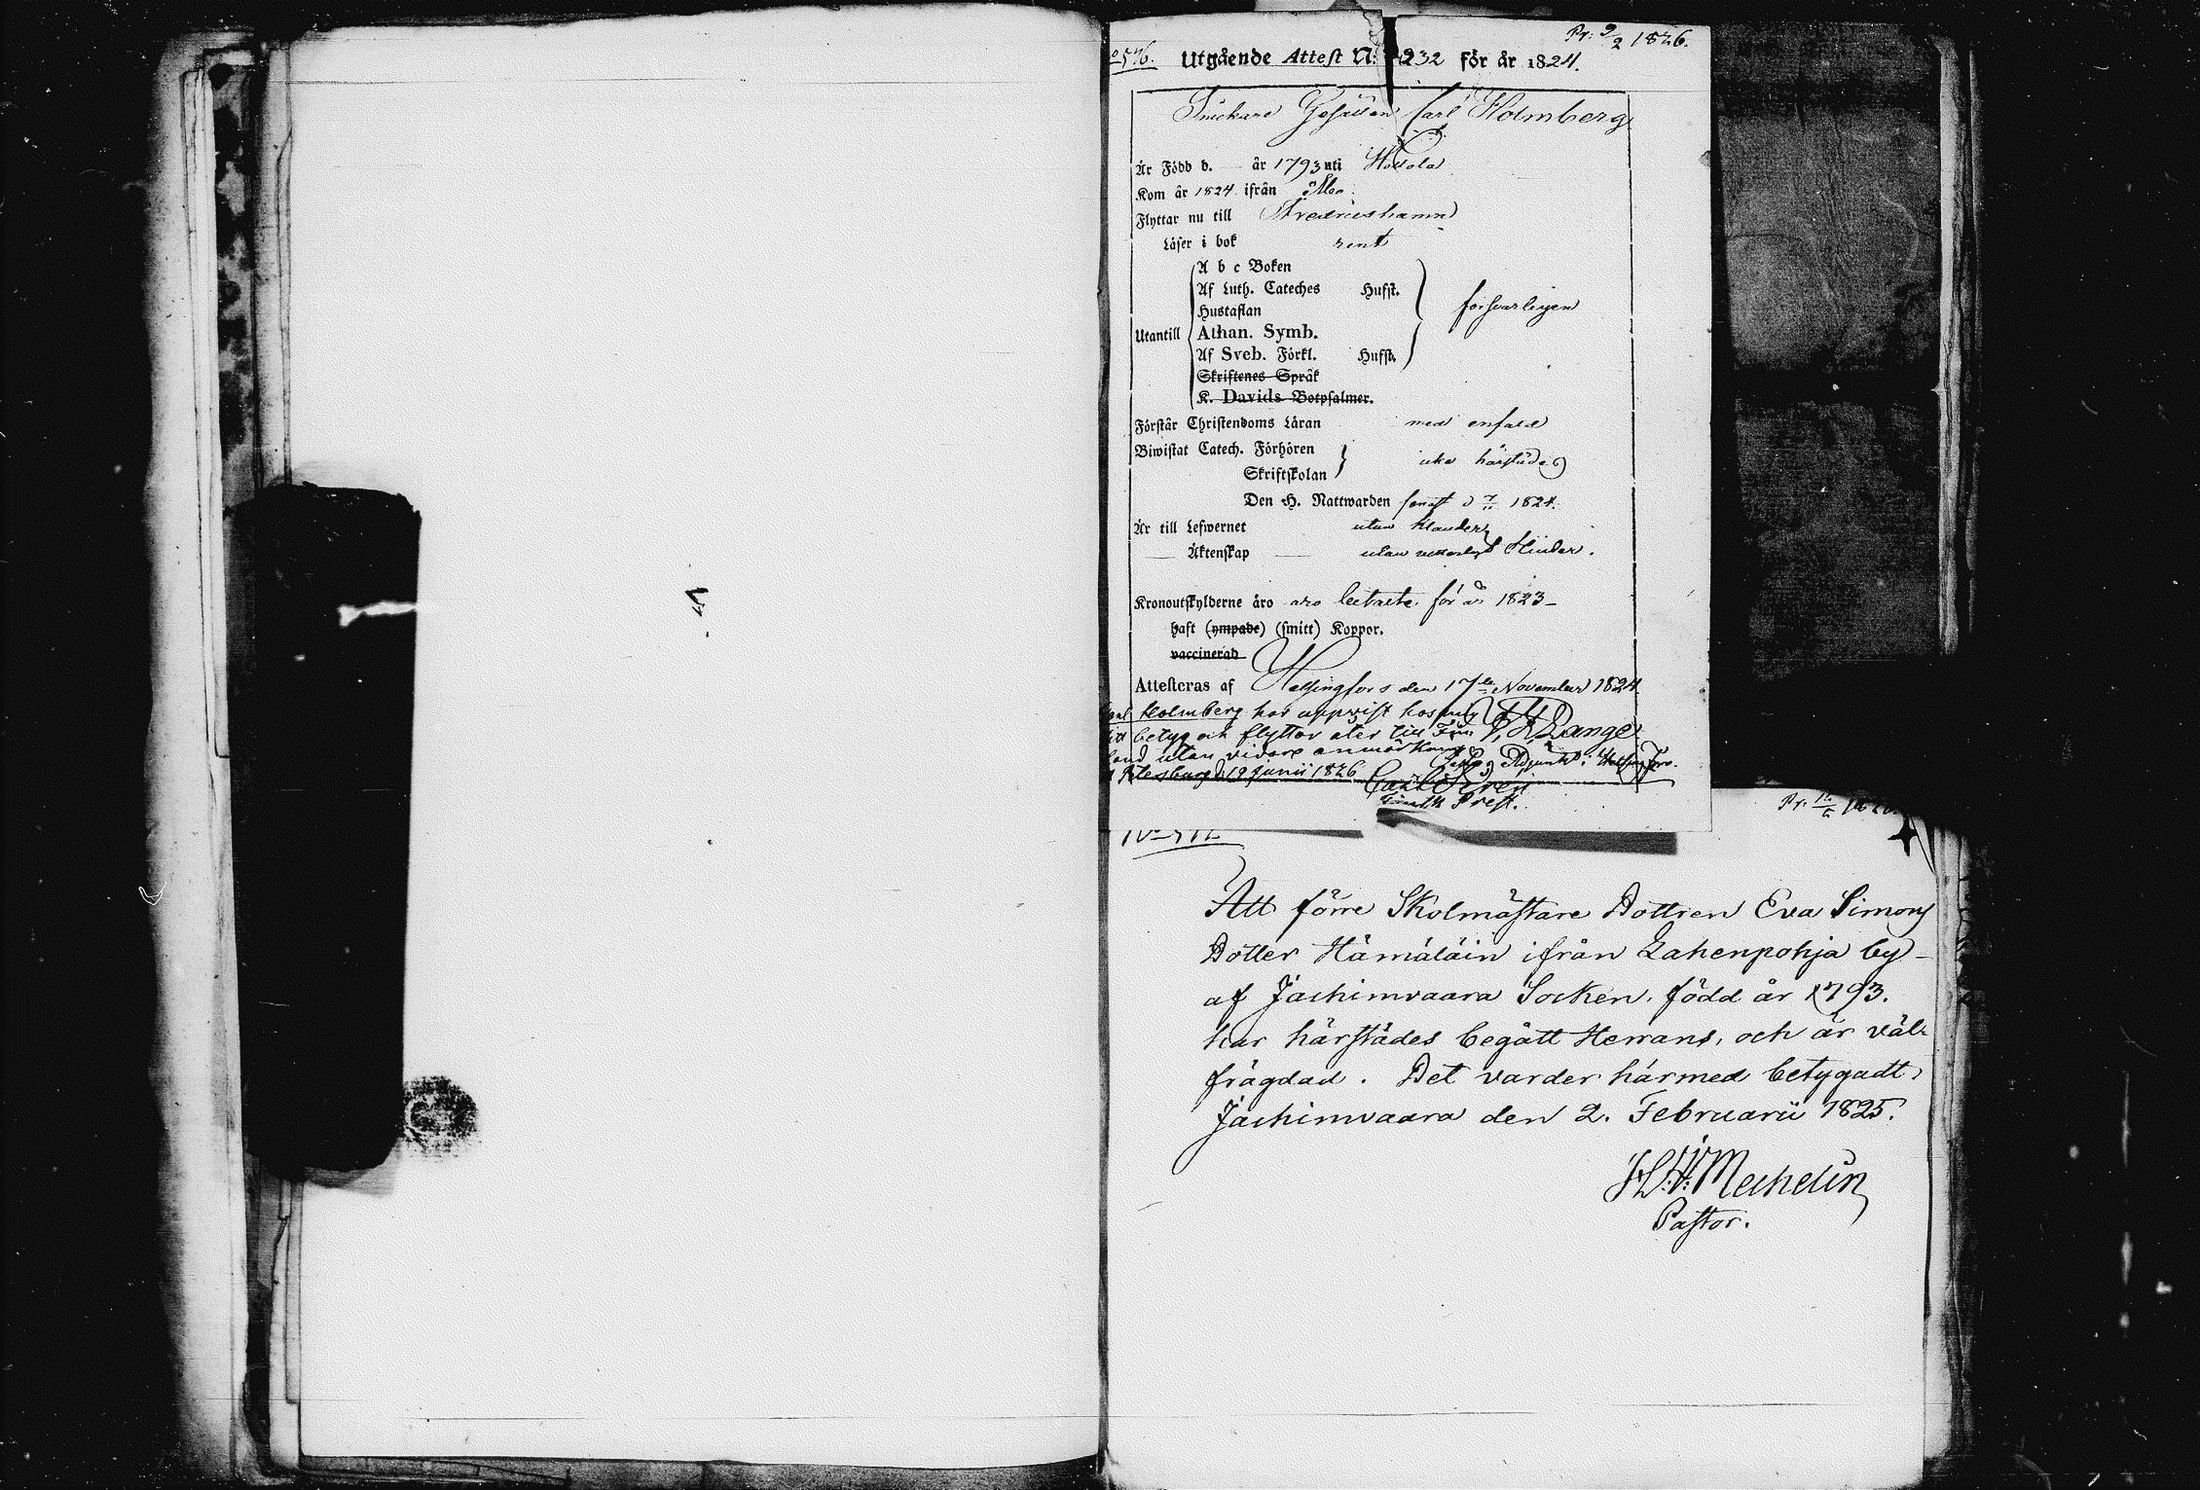 Pr. 9/2 1826.
576. Utgående Attest N: 232 för år 1824.
Snickare Gesällen Carl Holmberg
Är Född d. — år 1793 uti Hollola
Kom år 1824 ifrån Åbo
Flyttar nu till Fredricshamn
Läser i bok rent
A b c Boken
Af Luth. Cateches Hufst.
Hustaflan
Utantill Athan. Symb. försvarligen
Af Sveb. Förkl. Hufst.
Skriftenes Språk
K. Davids Botpsalmer.
Förstår Christendoms Läran med enfald
Biwistat Catech. Förhören
Skriftskolan icke härstädes
Den H. Nattwarden senast d 7/11 1824.
Är till Lefwernet utan klander
— Äktenskap — utan vetterligt Hinder.
Kronoutskylderne äro äro betalte för år 1823 –
haft (ympade) (smitt) Koppor.
vaccinerad
Attesteras af Helsingfors den 17de November 1824.
Holmberg har uppvist hos mig
betyg och flyttar åter till Fin
land utan vidare anmärkning
Petersburg d. 19 junii 1826
F. H. Lange
Adjunkt i Helsingfors.
Carl Sirén
Finsk Prest.
Pr.
Att förre Skolmästare Dottren Eva Simons
Dotter Hämäläin ifrån Lahenpohja by –
af Jachimvaara Socken, född år 1793.
har härstädes begått Herrans, och är väl-
frägdad. Det varder härmed betygadt,
Jachimvaara den 2. Februarii 1825.
Mechelin
Pastor.